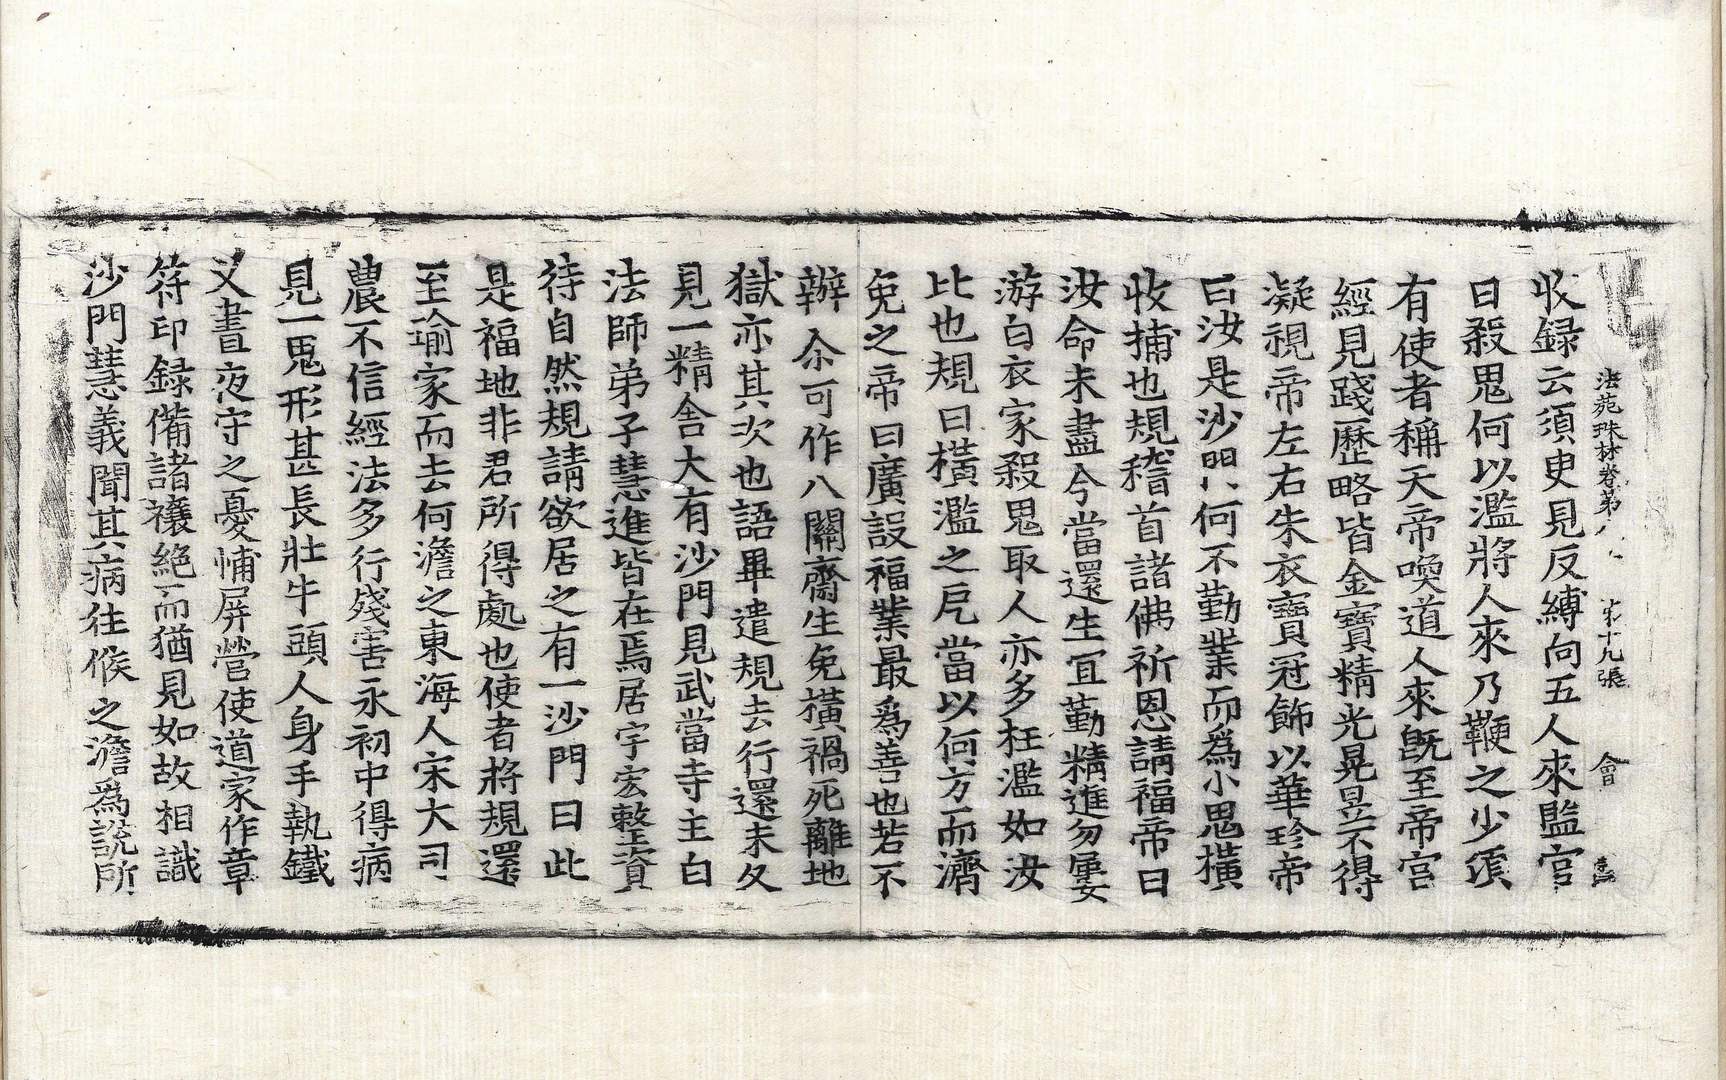 法苑珠林卷第八 第十九張 會
收録云須臾見反縛向五人來監官
曰殺鬼何以濫將人來乃鞭之少須
有使者稱天帝喚道人來旣至帝宫
經見踐歷略皆金寶精光晃昱不得
凝視帝左右朱衣寶冠飾以華珍帝
曰汝是沙門何不勤業而爲小鬼橫
收捕也規稽首諸佛祈恩請福帝曰
汝命未盡今當還生冝勤精進勿屢
游白衣家殺鬼取人亦多枉濫如汝
比也規曰橫濫之戹當以何方而濟
免之帝曰廣設福業最爲善也若不
辦尒可作八關齋生免橫禍死離地
獄亦其次也語畢遣規去行還未久
見一精舍大有沙門見武當寺主白
法師弟子慧進皆在焉居宇宏整資
待自然規請欲居之有一沙門曰此
是福地非君所得處也使者將規還
至瑜家而去何澹之東海人宋大司
農不信經法多行殘害永初中得病
見一鬼形甚長壯牛頭人身手執鐵
叉晝夜守之憂怖屏營使道家作章
符印録備諸禳絶而猶見如故相識
沙門慧義聞其病往候之澹爲說所